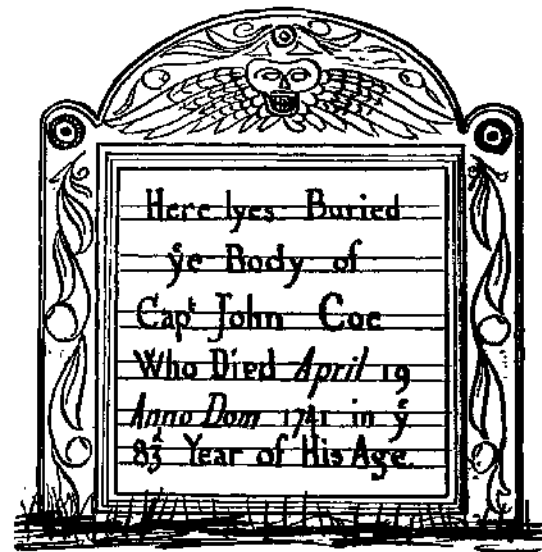 Here lyes Buried
yͤ Body of
Capᵗ John Coe
Who Died April 19
Anno Dom 1741 in yͤ
83ᵈ Year of His Age.